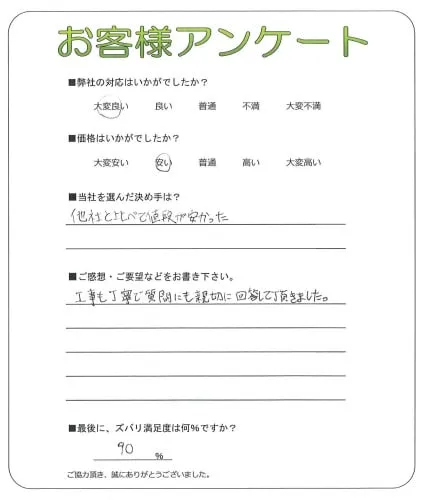 お客様アンケート
■弊社の対応はいかがでしたか？
大変良い 良い 普通 不満 大変不満
■価格はいかがでしたか？
大変安い 安い 普通 高い 大変高い
■当社を選んだ決め手は？
他社と比べて値段が安かった
■ご感想・ご要望などをお書き下さい。
工事も丁寧で質問にも親切に回答して頂きました。
■最後に、ズバリ満足度は何％ですか？
90 ％
ご協力頂き、誠にありがとうございました。